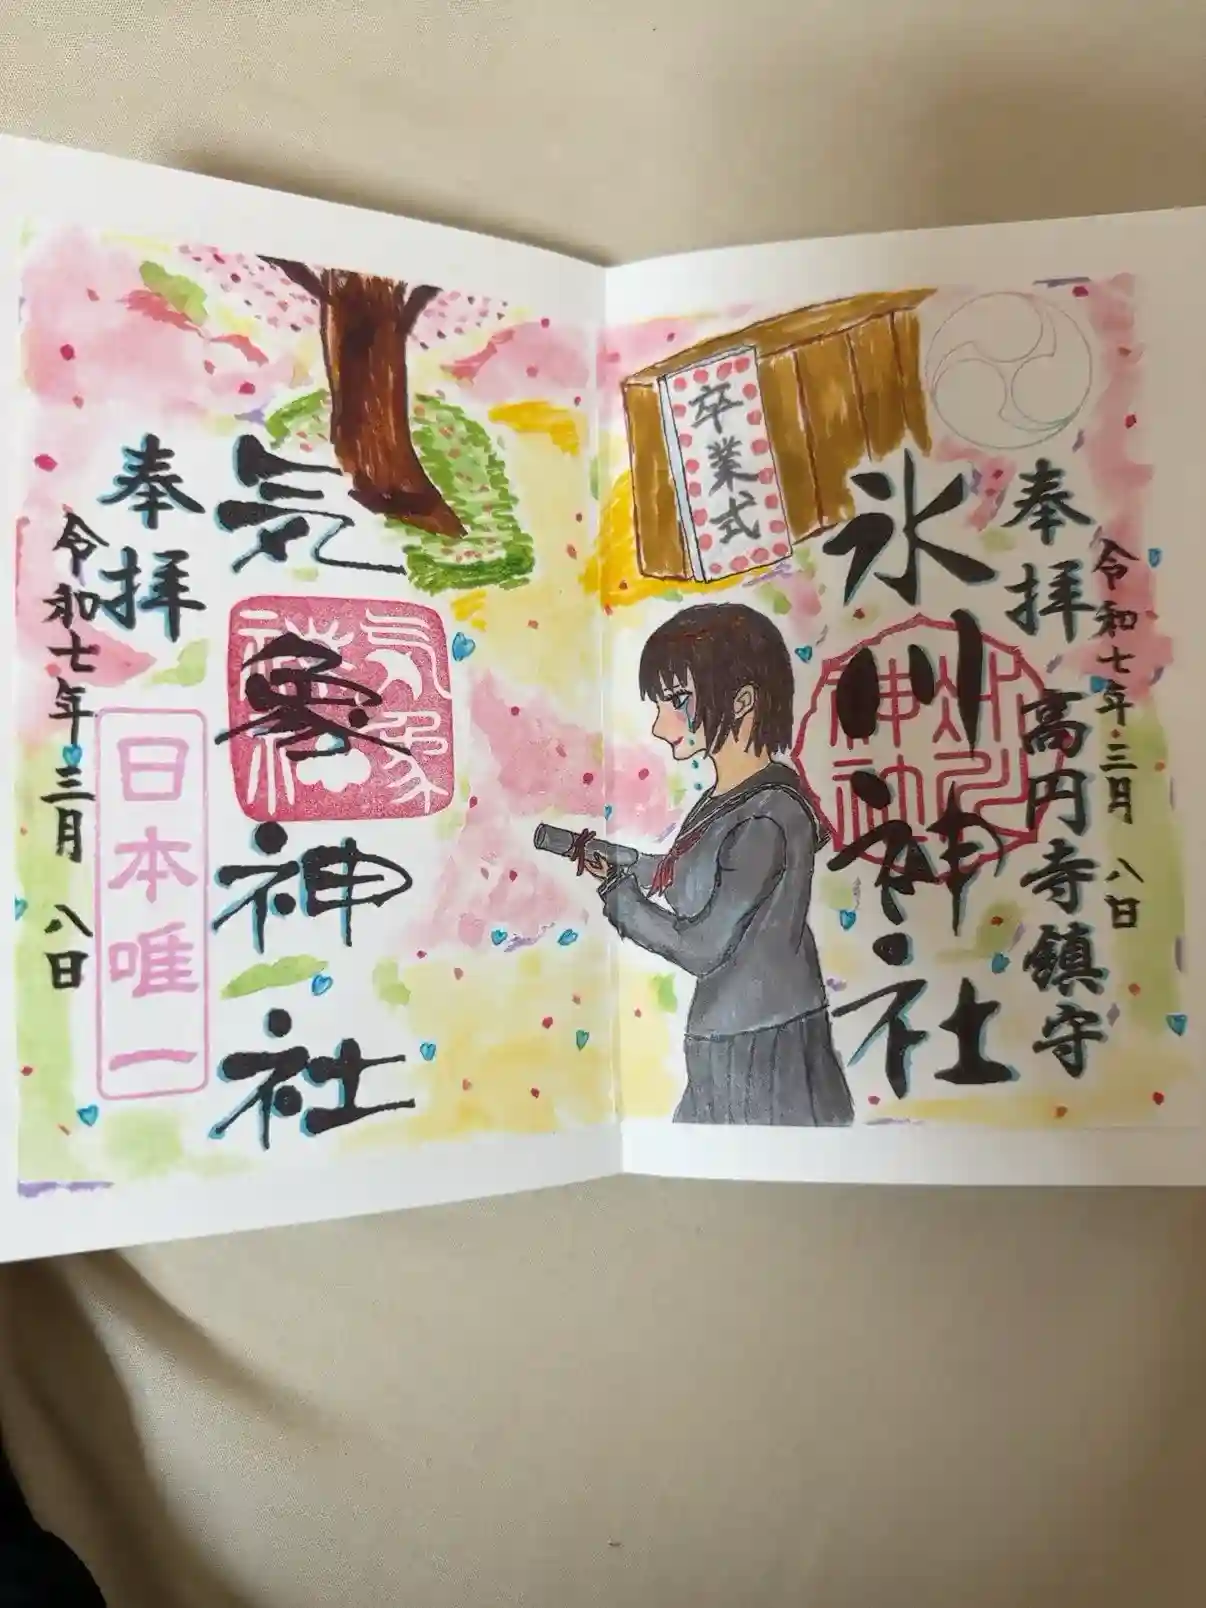 奉拝
高円寺鎮守
令和七年三月八日
氷川神社
氷川神社
卒業式
気象神社
気象神社
奉拝
令和七年三月八日
日本唯一